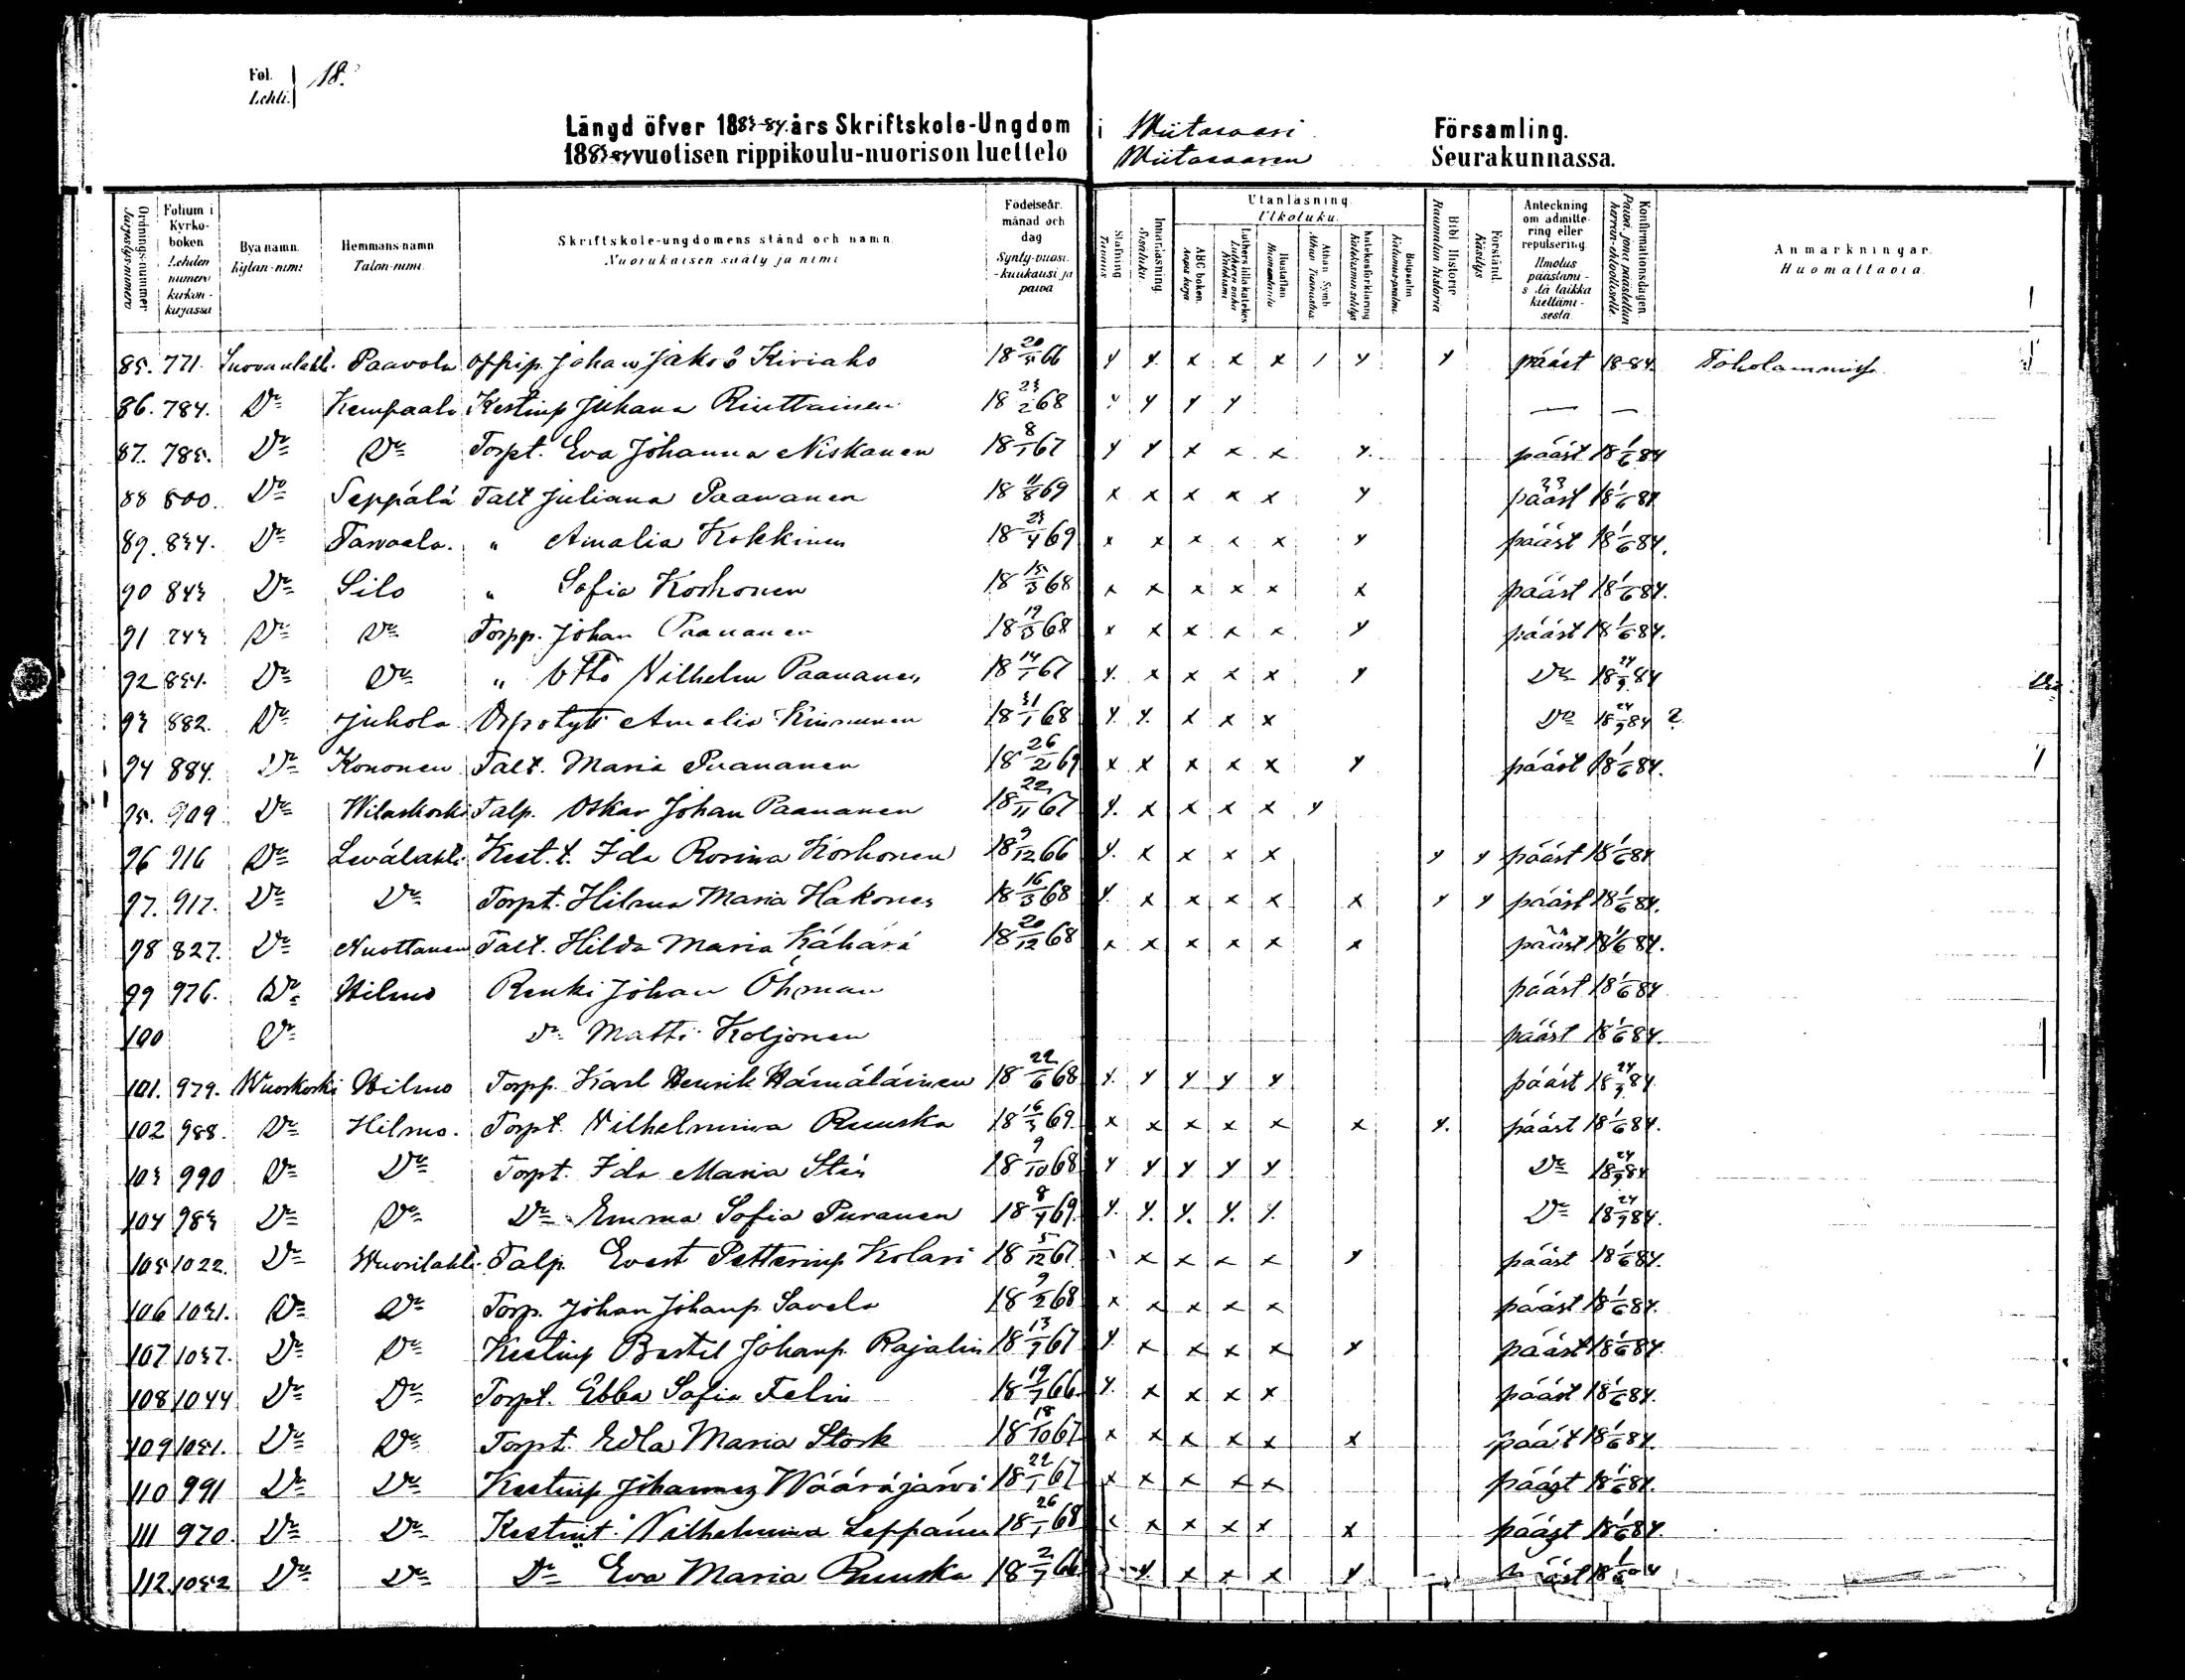 Fol. Lehti. 18.
Längd öfver 1883-84 års Skriftskole-Ungdom i Wiitasaari Församling.
1883-84 vuotisen rippikoulu-nuorison luettelo Wiitasaaren Seurakunnassa.
Ordnings-nummer Järjestys-numero
Folium i Kyrko-boken Lehden numero kirkon-kirjassa
Bya namn. Kylän-nimi
Hemmans-namn Talon-nimi.
Skriftskole-ungdomens stånd och namn. Nuorukaisen sääty ja nimi
Födelseår. månad och dag Synty-vuosi -kuukausi ja päivä
Stafning Tavaus
Innanläsning. Sisäluku.
Utanläsning. Ulkoluku.
ABC boken Aapis kirja
Luthers lilla katekes Lutherin vähä Katekismi
Hustaflan Huoneentaulu
Athan. Symb. Athan. Tunnustus
Katekesförklaring Katekismun selitys
Botpsalm Katumuspsalmi
Bibl. Historie Raamatun historia
Förstånd. Käsitys
Anteckning om admittering eller repulsering. Ilmotus päästämisestä taikka kieltämisestä.
Konfirmationsdagen.
Anmärkningar. Huomattavia.
85. 771. Suovanlahti Paavola Johan Jakob Kiviaho 18 20/5 66 y y x x x / y y pääst 18-84.
86. 784. Do Kestinp Juhana Rinttainen 18 23/2 68 y y y y — —
87. 785. Do Do Torpt. Eva Johanna Niskanen 18 8/1 67 y y x x x y. pääst 18 1/6 84
88 800. Do Seppälä Talt Juliana Paananen 18 11/8 69 x x x x x y pääst 18 1/6 84
89. 834. Do " Amalia Kokkinen 18 23/4 69 x x x x x y pääst 18 1/6 84.
90 843 Do Silo " Sofia Korhonen 18 15/3 68 x x x x x x pääst 18 1/6 84.
91 743 Do Do Torpp. Johan Paananen 18 19/3 68 x x x x x y pääst 18 1/6 84.
92 Do Do " Otto Wilhelm Paananen 18 14/1 67 y. x x x x y Do 18 24/9 84
93 882. Do Juhola Amalia Kinnunen 18 31/1 68 y. y. x x x Do 18 24/9 84 ?
94 884. Do Kononen Talt. Maria Paananen 18 26/2 69 x x x x x y pääst 18 1/6 84.
95. 909 Do Wilaskoski Talp. Oskar Johan Paananen 18 22/11 67 y. x x x x y
96 916 Do Levälahti Kest. t. Ida Rosina Korhonen 18 9/12 66 y. x x x x y y pääst 18 1/6 84
97. 917. Do Do Torpt. Hilma Maria Hakonen 18 16/3 68 y. x x x x x y y pääst 18 1/6 84.
98 827. Do Nuottanen Talt. Hilda Maria Kähärä 18 20/12 68 x x x x x x pääst 18 1/6 84.
99 976. Do Hilmo Renki Johan Öhman pääst 18 1/6 84
100 Do Do Matti Koljonen pääst 18 1/6 84.
101. 979. Wuoskoski Hilmo Torpp. Karl Henrik Hämäläinen 18 22/6 68 y. y y y y pääst 18 24/9 84
102 988. Do Hilmo. Torpt. Wilhelmina Ruuska 18 16/3 69. x x x x x x y. pääst 18 1/6 84.
103 990 Do Do Torpt. Ida Maria 18 9/10 68 y y y y y Do 18 24/9 84
104 983 Do Do Do Emma Sofia Puranen 18 8/4 69. y. y. y. y. y. Do 18 24/9 84.
105 1022. Do Wuorilahti Talp. Evert Petterinp Kolari 18 5/12 67. x x x x y pääst 18 1/6 84.
106 1031. Do Do Torp. Johan Johanp. Savela 18 9/2 68 x x x x x pääst 18 1/6 84.
107 1037. Do Do Kestinp Johanp. Rajalin 18 13/7 67 y. x x x x y pääst 18 1/6 84
108 1044 Do Do Torpt. Ebba Sofia Felin 18 19/7 66 y. x x x x pääst 18 1/6 84.
109 1051. Do Do Torpt. Edla Maria Stork 18 18/10 67 x x x x x x pääst 18 1/6 84.
110 991 Do Do Kestinp Johannes Wääräjärvi 18 22/1 67 x x x x x pääst 18 1/6 84.
111 970. Do Do Kestint. Wilhelmina Leppänen 18 26/1 68 x x x x x x pääst 18 1/6 84.
112. 1052 Do Do Do Eva Maria Ruuska 18 2/7 66 y. x x x y pääst 18 1/6 84